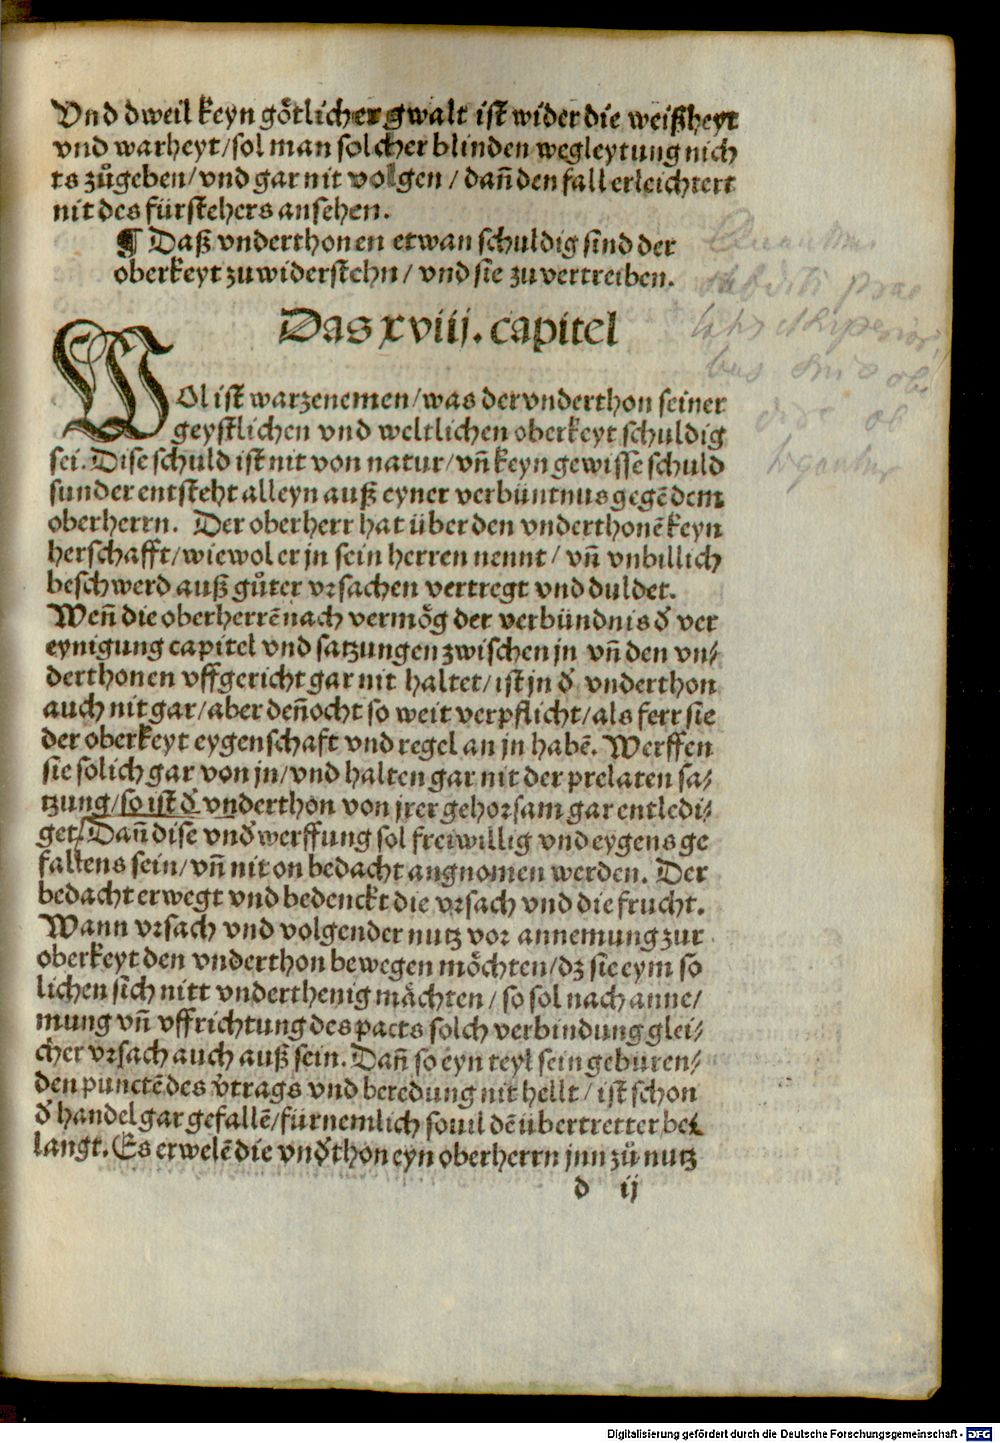 Vnd dweil keyn götlicher gwalt ist wider die weißheyt
vnd warheyt/sol man solcher blinden wegleytung nich
ts zůgeben/vnd gar nit volgen/dañ den fall erleichtert
nit des fürstehers ansehen.
¶ Daß vnderthonen etwan schuldig sind der
oberkeyt zuwiderstehn/vnd sie zuvertreiben.
Das xviij. capitel
WOl ist warzenemen/was der vnderthon seiner
geystlichen vnd weltlichen oberkeyt schuldig
sei. Dise schuld ist nit von natur/vñ keyn gewisse schuld
sunder entsteht alleyn auß eyner verbüntnus gegẽ dem
oberherrn. Der oberherr hat über den vnderthonẽ keyn
herschafft/wiewol er jn sein herren nennt/vñ vnbillich
beschwerd auß gůter vrsachen vertregt vnd duldet.
Weñ die oberherrẽ nach vermög der verbündnis d̛ ver
eynigung capitel vnd satzungen zwischen jn vñ den vn/
derthonen vffgericht gar nit haltet/ist jn d̛ vnderthon
auch nit gar/aber deñocht so weit verpflicht/als ferr sie
der oberkeyt eygenschaft vnd regel an jn habẽ. Werffen
sie solich gar von jn/vnd halten gar nit der prelaten sa/
tzung/so ist d̛ vnderthon von jrer gehorsam gar entledi/
get/Dañ dise vnd̛werffung sol freiwillig vnd eygens ge
fallens sein/vñ nit on bedacht angnomen werden. Der
bedacht erwegt vnd bedenckt die vrsach vnd die frucht.
Wann vrsach vnd volgender nutz vor annemung zur
oberkeyt den vnderthon bewegen möchten/dz sie eym so
lichen sich nitt vnderthenig mächten/so sol nach anne/
mung vñ vffrichtung des pacts solch verbindung glei/
cher vrsach auch auß sein. Dañ so eyn teyl sein gebüren/
den punctẽ des v̛trags vnd beredung nit hellt/ist schon
d̛ handel gar gefallẽ/fürnemlich souil dẽ übertretter be/
langt. Es erwelẽ die vnd̛thon eyn oberherrn jnn zů nutz
d ij
obediti prae
bus suis obe
dire ob
ligantur
Digitalisierung gefördert durch die Deutsche Forschungsgemeinschaft - DFG